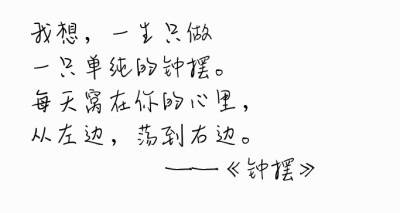 我想，一生只做
一只单纯的钟摆。
每天窝在你的心里，
从左边，荡到右边。
——《钟摆》